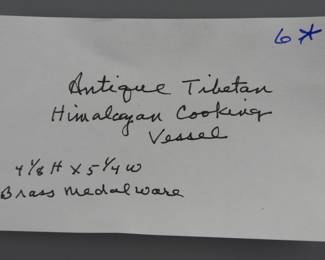 6*
Antique Tibetan
Himalayan Cooking
Vessel
4 1/8 H x 5 1/4 W
Brass medalware